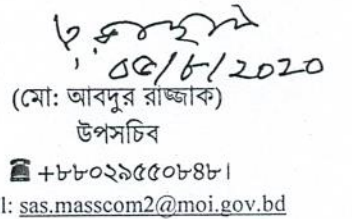 ০৫/৮/2020
(মো: আবদুর রাজ্জাক)
উপসচিব
☎ +৮৮০২৯৫৫০৮৪৮।
l: sas.masscom2@moi.gov.bd